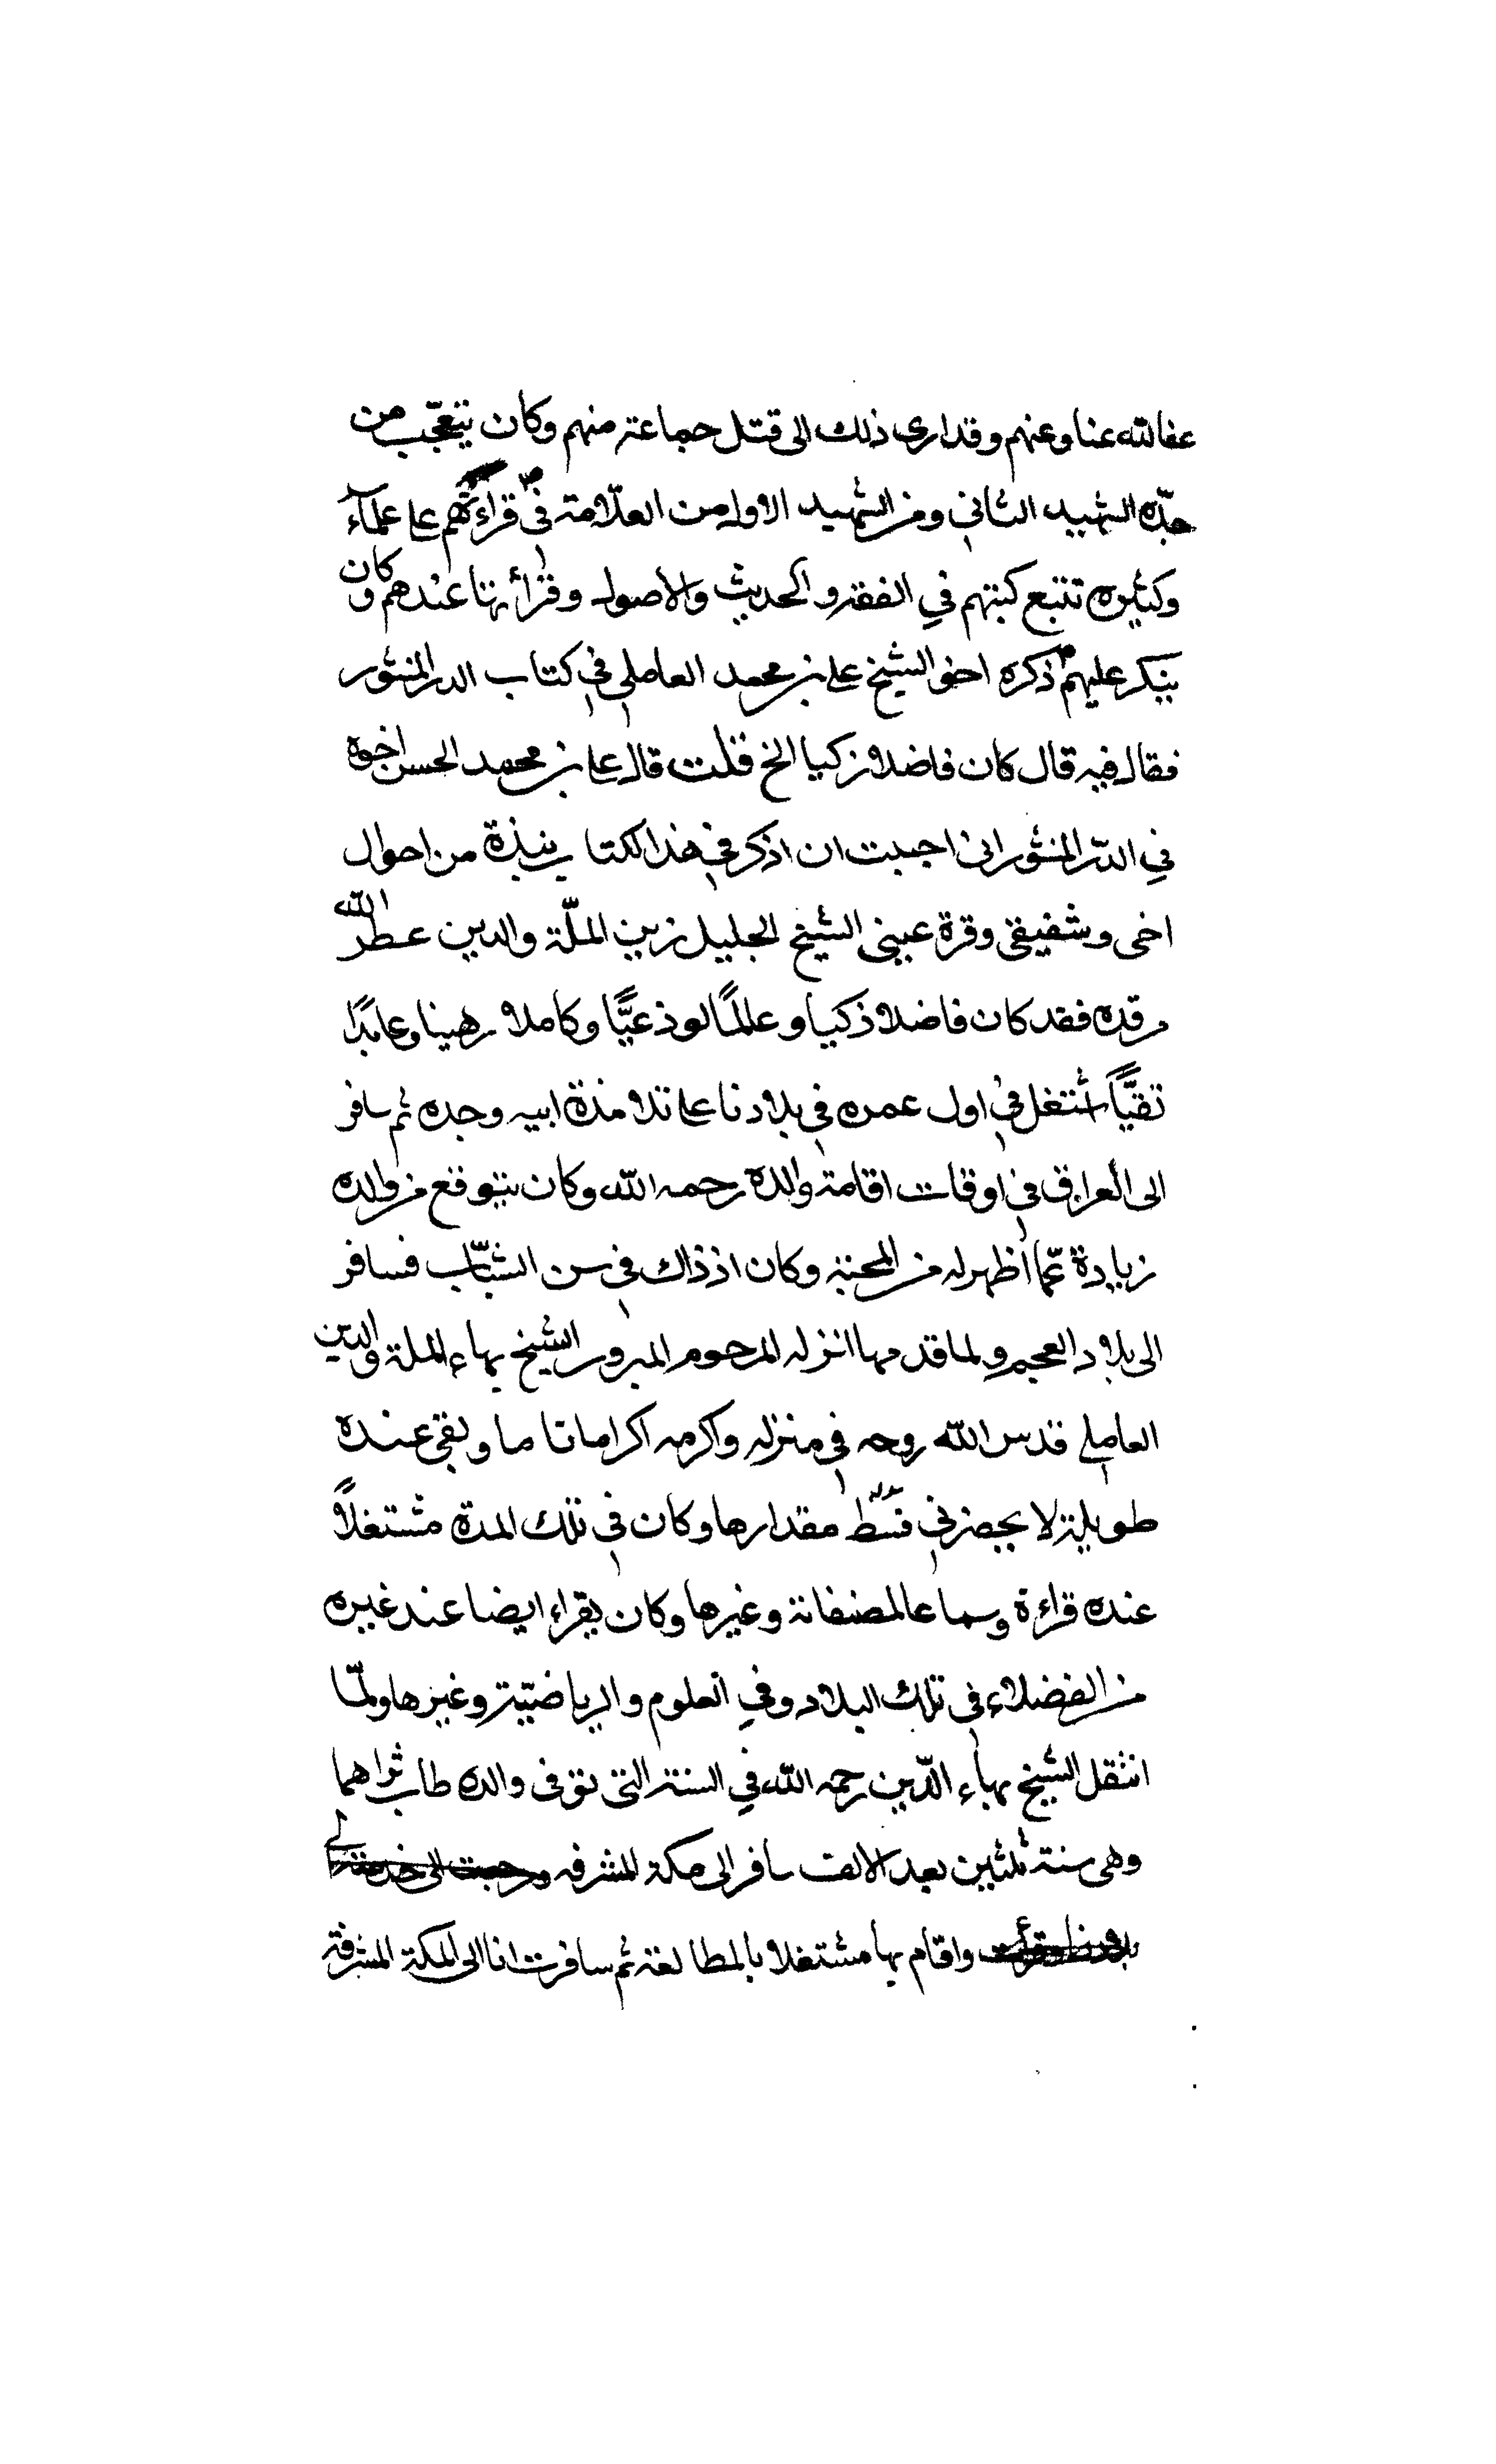 عفا الله عنا وعنهم وقد ادى ذلك الى قتل جماعة منهم وكان يتعجب من
جدّه الشهيد الثاني ومن الشهيد الاول ومن العلّامة في قراءتهم على علمآء
وكثرة تتبع كتبهم في الفقه والحديث والاصول وقرأتها عندهم وكان
ينكر عليهم ذكره اخو الشيخ علي بن محمد العاملي في كتاب الدر المنثور
فقال فيه قال كان فاضلا زكيا الخ قلت قال علي بن محمد الحسن اخوه
في الدّر المنثور اني احببت ان اذكر في هذا الكتاب نبذة من احوال
اخي وشفيقي وقرة عيني الشيخ الجليل زين الملّة والدين عطر الله
مرقده فقد كان فاضلا ذكيا وعالمًا لوذعيًّا وكاملا رهينا وعابدًا
تقيًّا اشتغل في اول عمره في بلادنا على تلامذة ابيه وجده ثم سافر
الى العراق في اوقات اقامة والده رحمه الله وكان يتوقع من والده
زيادة عمّا اظهر له من المحبة وكان اذ ذاك في سن الشبّاب فسافر
الى بلاد العجم ولما قدمها انزله المرحوم المبرور الشيخ بهاء الملة والدين
العاملي قدس الله روحه في منزله واكرمه اكراما تاما وبقي عنده
طويلة لا يحضرني مقدارها وكان في تلك المدة مشتغلاً
عنده قراءة وسماعا لمصنفاته وغيرها وكان يقراء ايضا عند غيره
من الفضلاء في تلك البلاد وفي العلوم والرياضيّة وغيرها ولمّا
انتقل الشيخ بهاء الدّين رحمه الله في السنة التي توفي والده طاب ثراهما
وهي سنة ثلثين بعد الالف سافر الى مكة المشرفه ورجعت الى خدمته
بلادنا وقرأت واقام بها مشتغلا بالمطالعة ثم سافرت انا الى المكة المشرفة